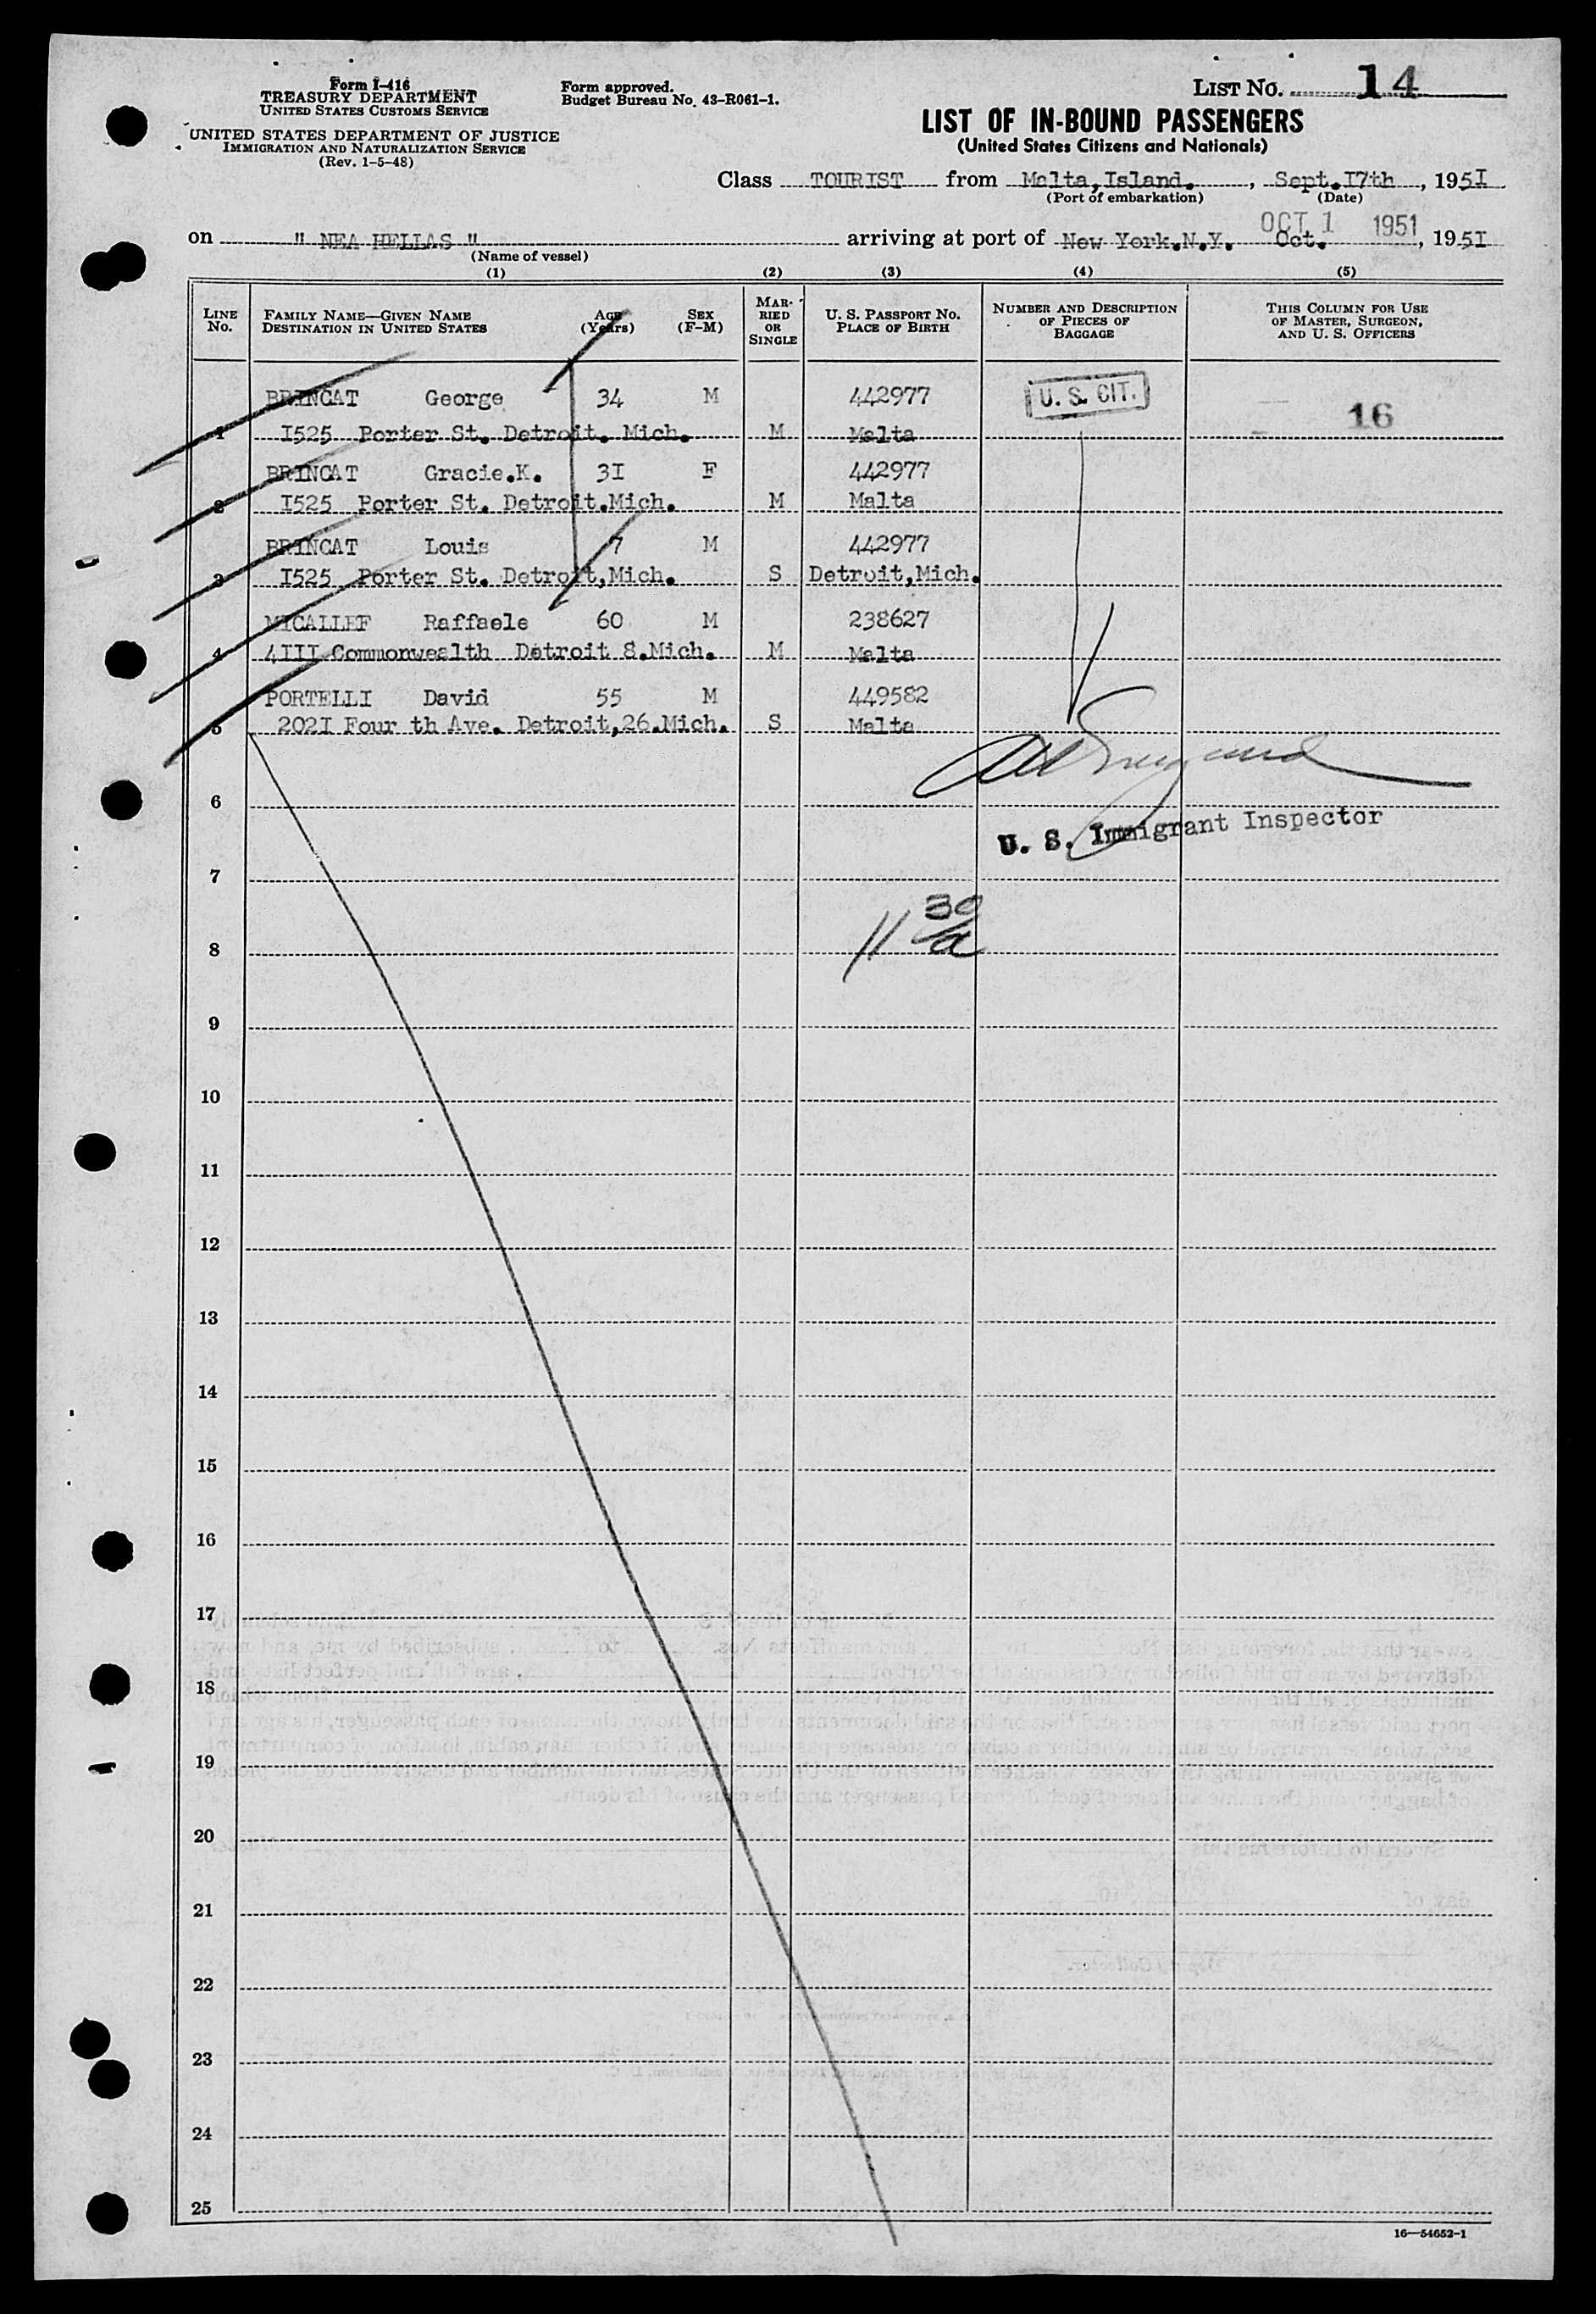 Form I-416
TREASURY DEPARTMENT
UNITED STATES CUSTOMS SERVICE
UNITED STATES DEPARTMENT OF JUSTICE
IMMIGRATION AND NATURALIZATION SERVICE
(Rev. 1-5-48)
Form approved.
Budget Bureau No. 43-R061-1.
LIST NO. 14
LIST OF IN-BOUND PASSENGERS
(United States Citizens and Nationals)
Class TOURIST from Malta,Island. , Sept.I7th , 195I
(Port of embarkation) (Date)
OCT 1 1951
on " NEA HELLAS " arriving at port of New York.N.Y. Oct. , 195I
(Name of vessel)
(1) (2) (3) (4) (5)
LINE No. FAMILY NAME—GIVEN NAME DESTINATION IN UNITED STATES AGE (Years) SEX (F-M) MARRIED OR SINGLE U. S. PASSPORT NO. PLACE OF BIRTH NUMBER AND DESCRIPTION OF PIECES OF BAGGAGE THIS COLUMN FOR USE OF MASTER, SURGEON, AND U. S. OFFICERS
BRINCAT George 34 M 442977 U. S. CIT. 16
1 I525 Porter St. Detroit. Mich. M Malta
BRINCAT Gracie.K. 3I F 442977
2 I525 Porter St. Detroit.Mich. M Malta
BRINCAT Louis 7 M 442977
3 I525 Porter St. Detroit,Mich. S Detroit,Mich.
MICALLEF Raffaele 60 M 238627
4 4III Commonwealth Detroit 8.Mich. M Malta
PORTELLI David 55 M 449582
5 202I Four th Ave. Detroit,26.Mich. S Malta
6
U. S. Immigrant Inspector
7
11 30 a
8
9
10
11
12
13
14
15
16
17
18
19
20
21
22
23
24
25
16—54652-1